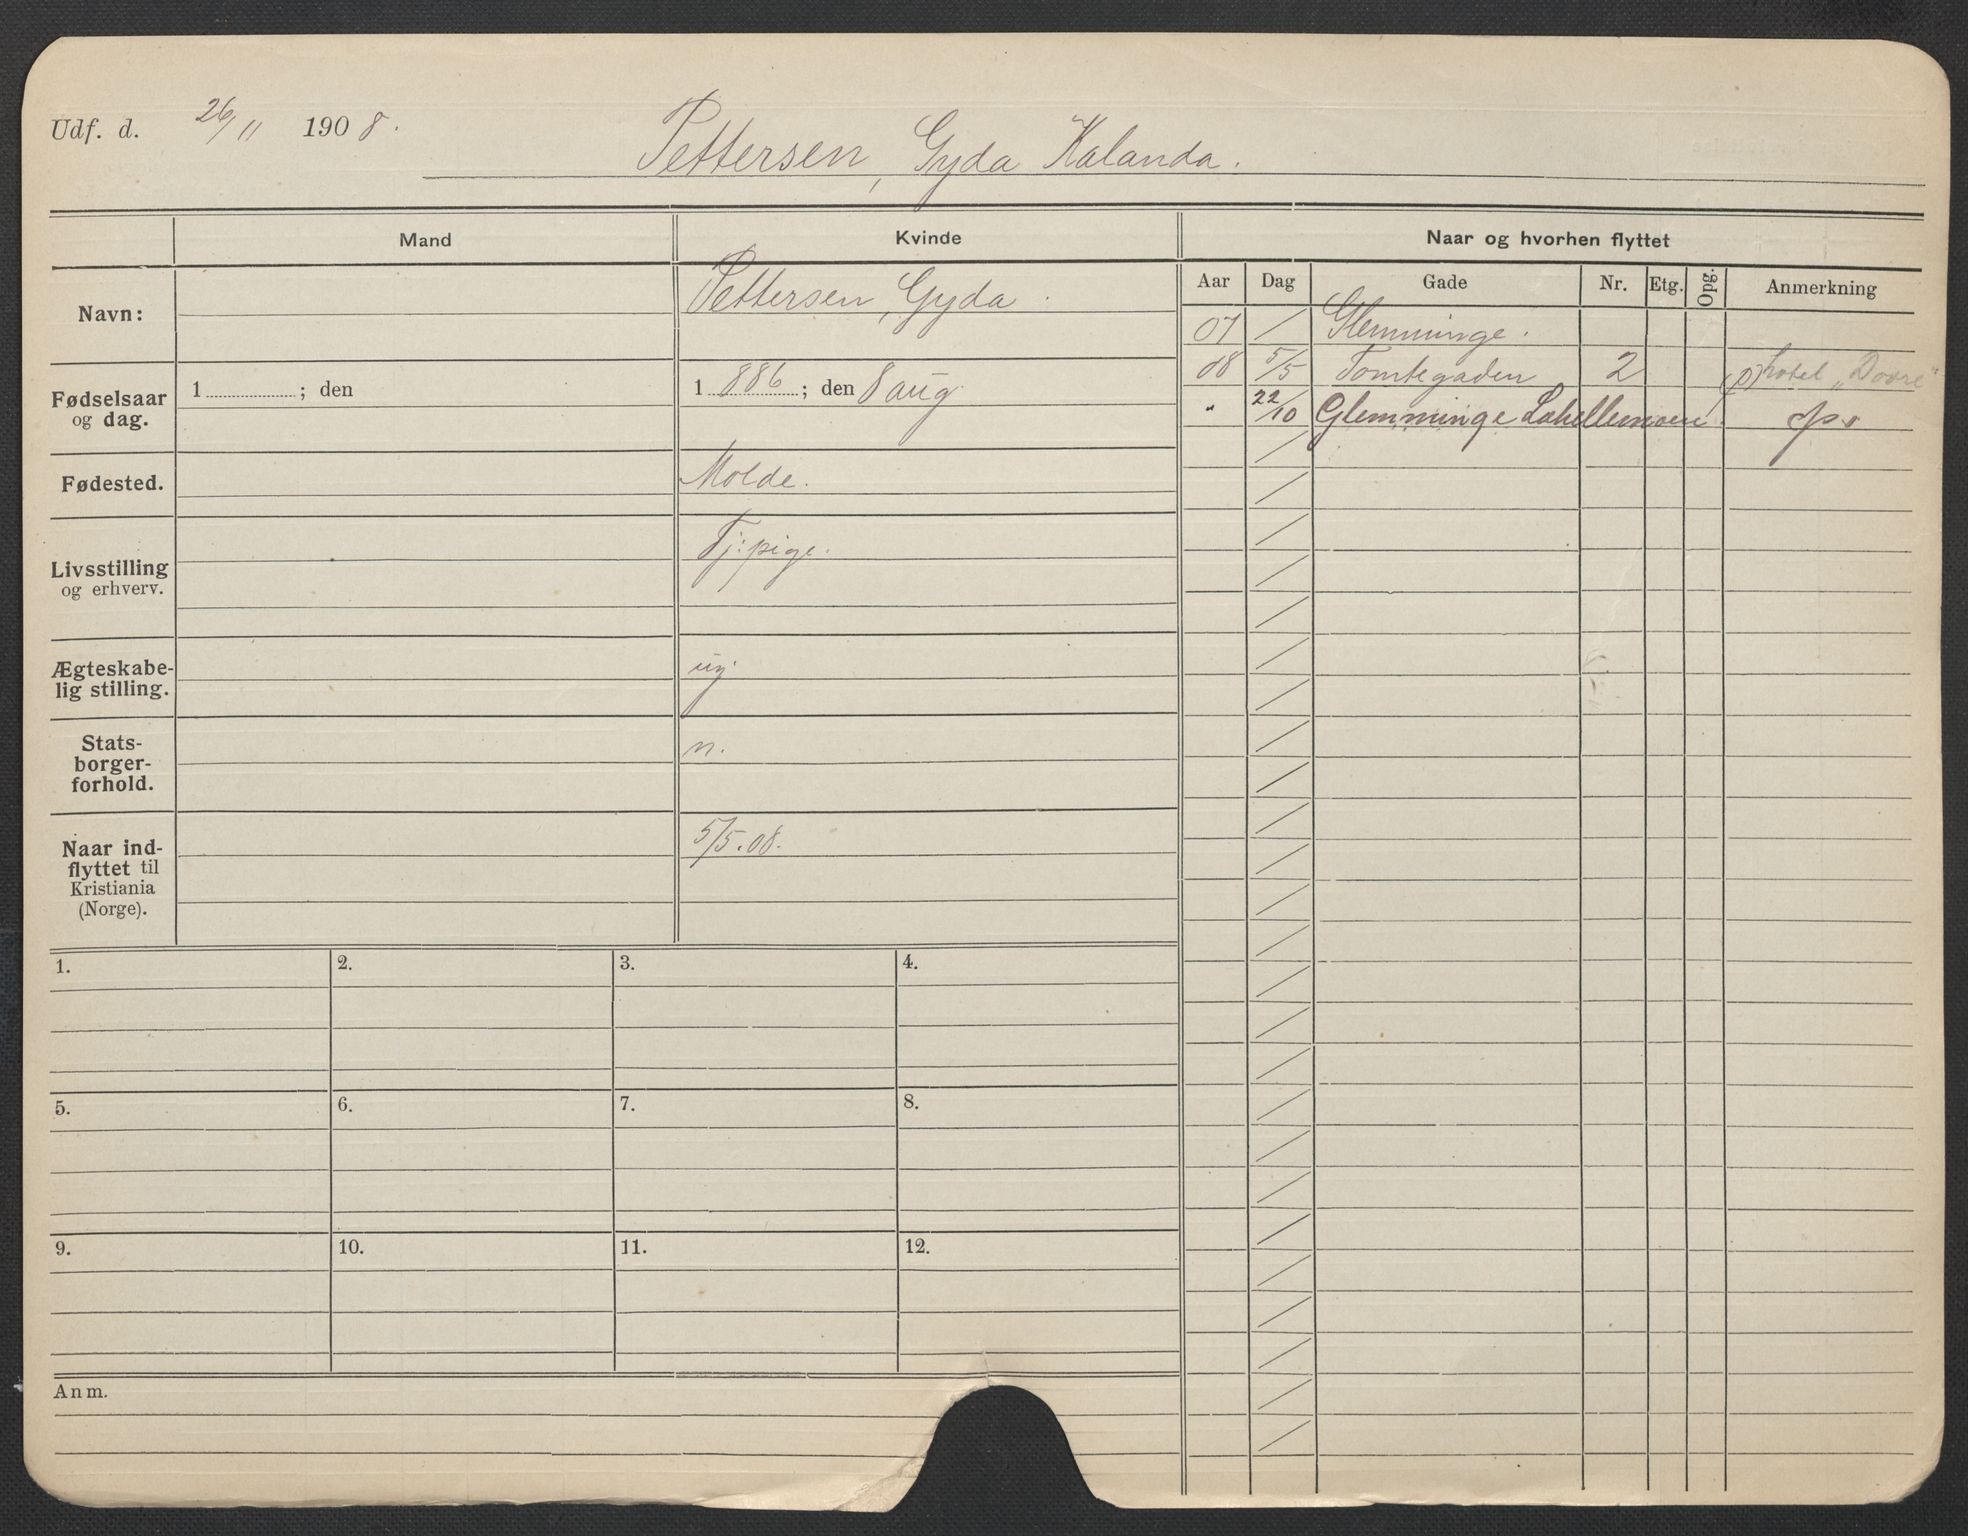 Udf. d. 26/11 1908.
Pettersen, Gyda Kalanda.
Mand
Kvinde
Naar og hvorhen flyttet
Aar Dag Gade Nr. Etg. Opg. Anmerkning
Navn:
Pettersen, Gyda.
07 / Glemminge.
08 5/5 Tomtegaden 2 (P) hotel „Dovre"
" 22/10 Glemminge Lahellemoen
Fødselsaar
og dag.
1 ; den
1 886 ; den 8 aug.
Fødested.
Molde.
Livsstilling
og erhverv.
Tj:pige.
Ægteskabe-
lig stilling.
ug.
Stats-
borger-
forhold.
n.
Naar ind-
flyttet til
Kristiania
(Norge).
5/5.08.
1. 2. 3. 4.
5. 6. 7. 8.
9. 10. 11. 12.
Anm.